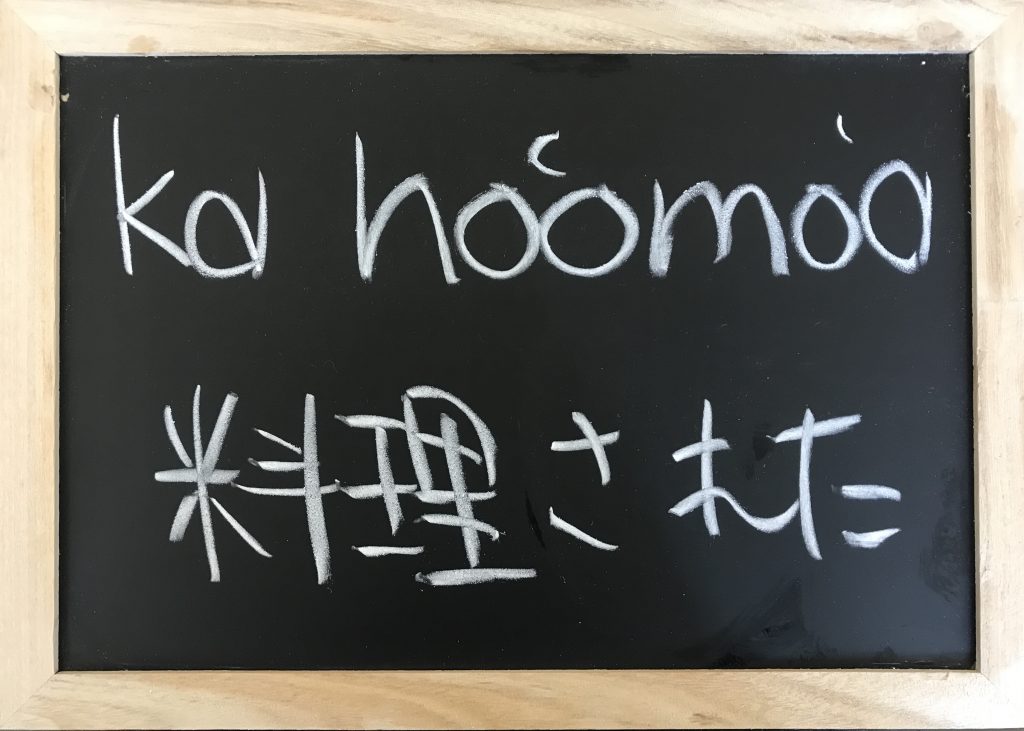 ka hoʻomoʻa
料理された